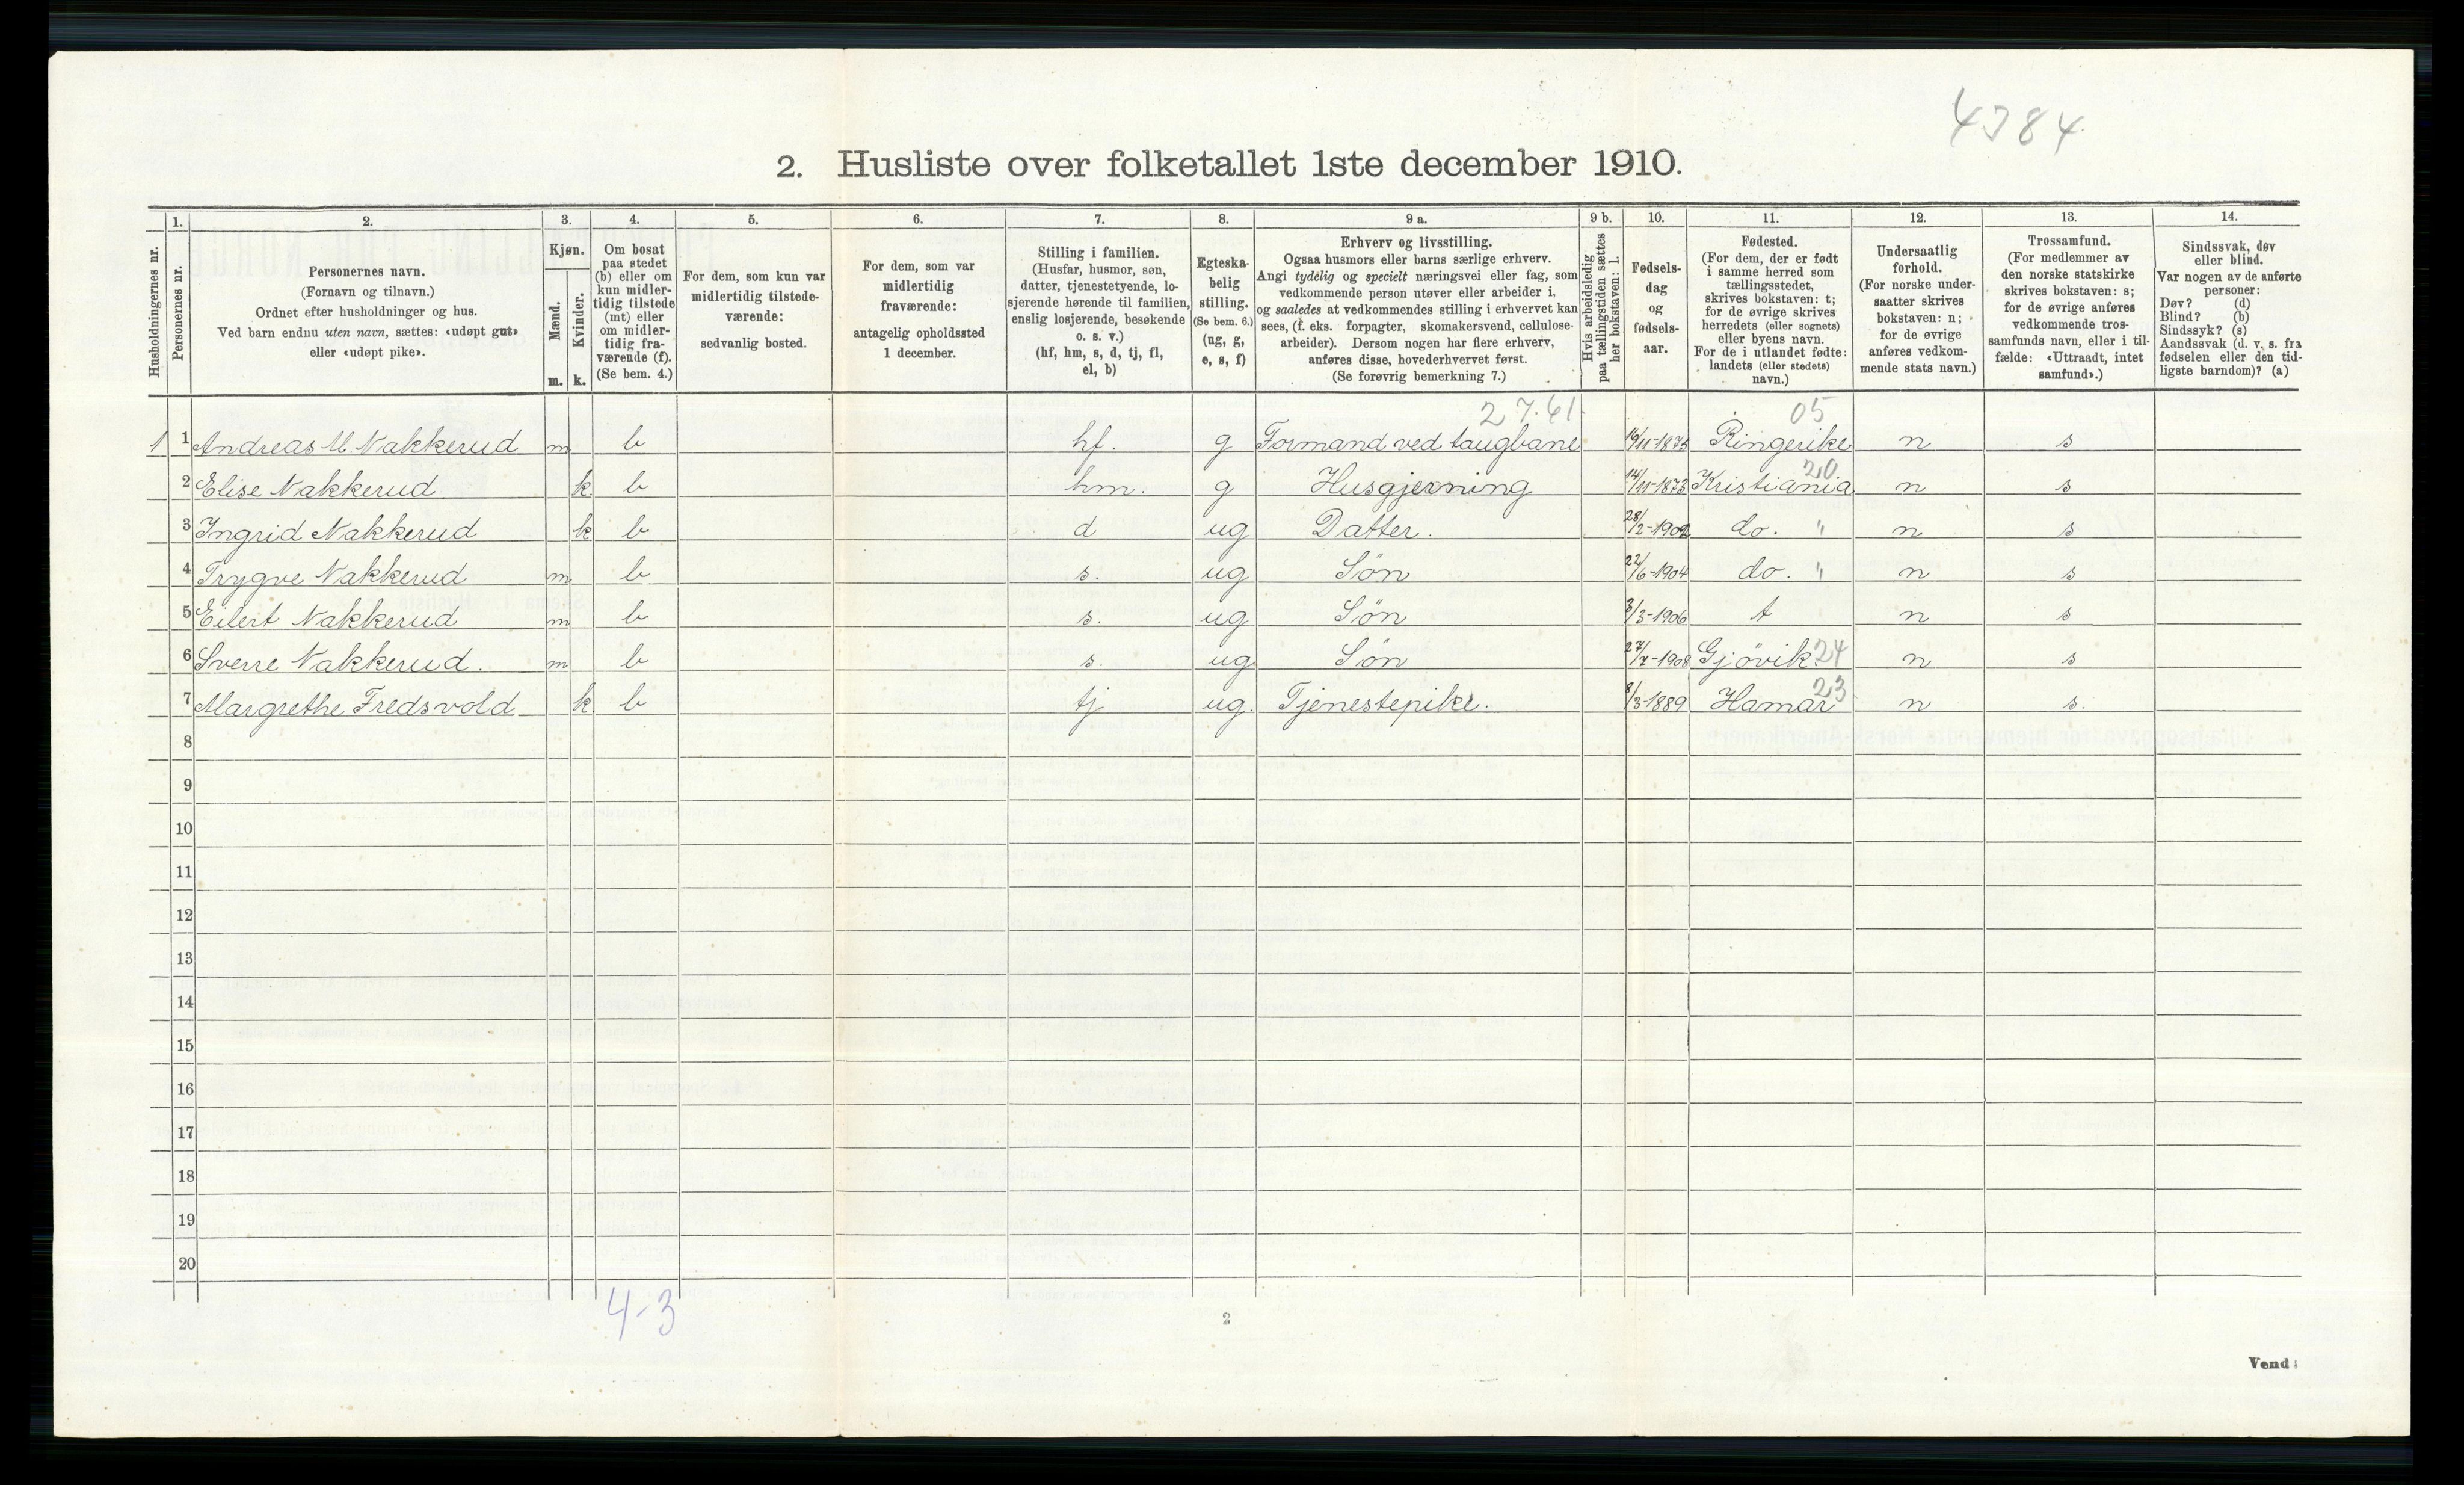 4384
2. Husliste over folketallet 1ste december 1910.
Husholdningernes nr.
1.
Personernes nr.
2.
Personernes navn.
(Fornavn og tilnavn.)
Ordnet efter husholdninger og hus.
Ved barn endnu uten navn, sættes: «udøpt gut»
eller «udøpt pike».
3.
Kjøn.
Mænd.
Kvinder.
m. k.
4.
Om bosat
paa stedet
(b) eller om
kun midler-
tidig tilstede
(mt) eller
om midler-
tidig fra-
værende (f).
(Se bem. 4.)
5.
For dem, som kun var
midlertidig tilstede-
værende:
sedvanlig bosted.
6.
For dem, som var
midlertidig
fraværende:
antagelig opholdssted
1 december.
7.
Stilling i familien.
(Husfar, husmor, søn,
datter, tjenestetyende, lo-
sjerende hørende til familien,
enslig losjerende, besøkende
o. s. v.)
(hf, hm, s, d, tj, fl,
el, b)
8.
Egteska-
belig
stilling.
(Se bem. 6.)
(ug, g,
e, s, f)
9 a.
Erhverv og livsstilling.
Ogsaa husmors eller barns særlige erhverv.
Angi tydelig og specielt næringsvei eller fag, som
vedkommende person utøver eller arbeider i,
og saaledes at vedkommendes stilling i erhvervet kan
sees, (f. eks. forpagter, skomakersvend, cellulose-
arbeider). Dersom nogen har flere erhverv,
anføres disse, hovederhvervet først.
(Se forøvrig bemerkning 7.)
9 b.
Hvis arbeidsledig
paa tællingstiden sættes
her bokstaven: l.
10.
Fødsels-
dag
og
fødsels-
aar.
11.
Fødested.
(For dem, der er født
i samme herred som
tællingsstedet,
skrives bokstaven: t;
for de øvrige skrives
herredets (eller sognets)
eller byens navn.
For de i utlandet fødte:
landets (eller stedets)
navn.)
12.
Undersaatlig
forhold.
(For norske under-
saatter skrives
bokstaven: n;
for de øvrige
anføres vedkom-
mende stats navn.)
13.
Trossamfund.
(For medlemmer av
den norske statskirke
skrives bokstaven: s;
for de øvrige anføres
vedkommende tros-
samfunds navn, eller i til-
fælde: «Uttraadt, intet
samfund».)
14.
Sindssvak, døv
eller blind.
Var nogen av de anførte
personer:
Døv? (d)
Blind? (b)
Sindssyk? (s)
Aandssvak (d. v. s. fra
fødselen eller den tid-
ligste barndom)? (a)
27.61. 05
1 1 Andreas M. Nakkerud m b hf. g Formand ved taugbane 19/11-1875 Ringerike n s
20
2 Elise Nakkerud k b hm. g Husgjerning 14/11-1873 Kristiania n s
3 Ingrid Nakkerud k b d ug Datter. 28/2-1902 do. " n s
4 Trygve Nakkerud m b s. ug Søn 22/6-1904 do. " n s
5 Eilert Nakkerud m b s. ug Søn 3/3-1906 t n s
6 Sverre Nakkerud. m b s. ug Søn 27/7-1908 Gjøvik. 24 n s
23
7 Margrethe Fredsvold k b tj ug. Tjenestepike. 8/3-1889 Hamar n s.
8
9
10
11
12
13
14
15
16
17
18
19
20
4-3
2
Vend